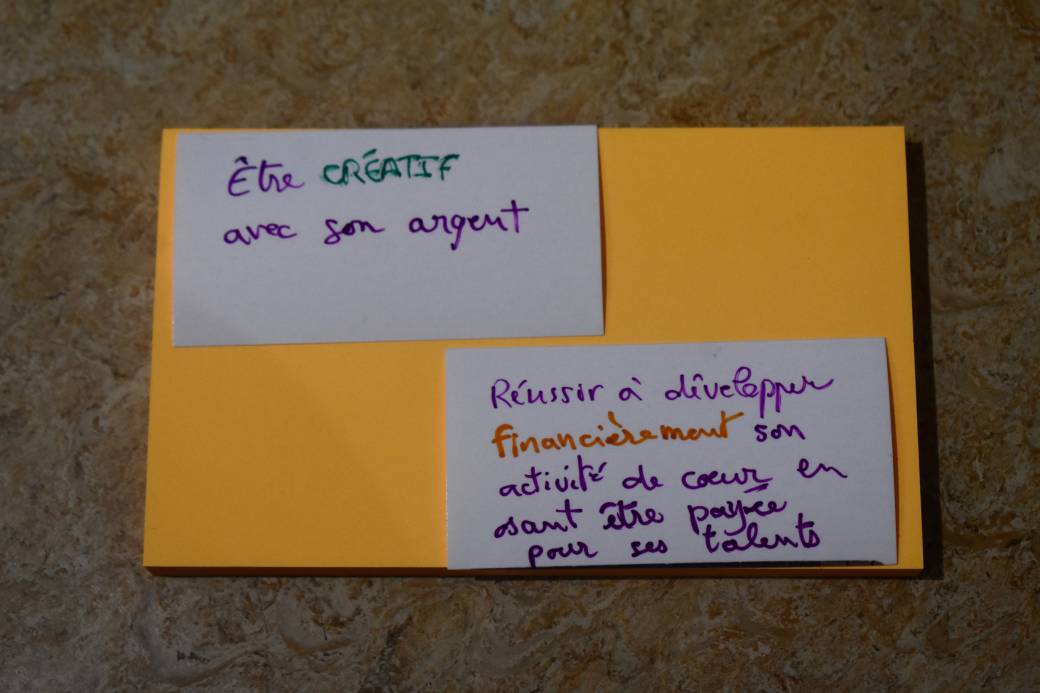 Être CRÉATIF
avec son argent
Réussir à développer
financièrement son
activité de cœur en
osant être payée
pour ses talents